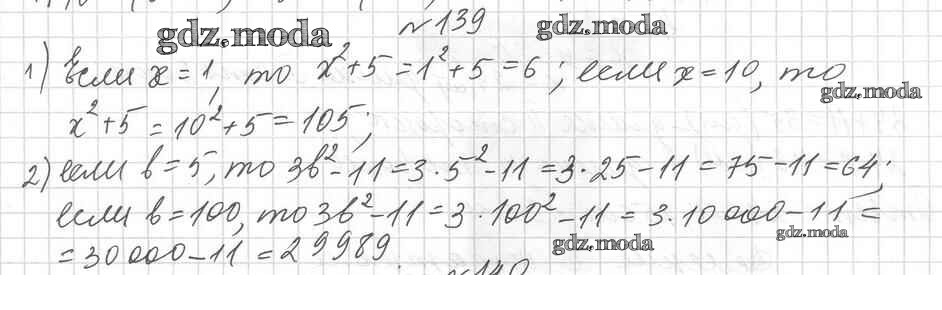 №139
gdz.moda gdz.moda
1) Если x = 1, то x²+5 = 1²+5 = 6; если x = 10, то
gdz.moda
x²+5 = 10²+5 = 105;
2) если b = 5, то 3b²-11 = 3·5²-11 = 3·25-11 = 75-11 = 64;
если b = 100, то 3b²-11 = 3·100²-11 = 3·10000-11 =
gdz.moda gdz.moda
= 30000-11 = 29989.
№140